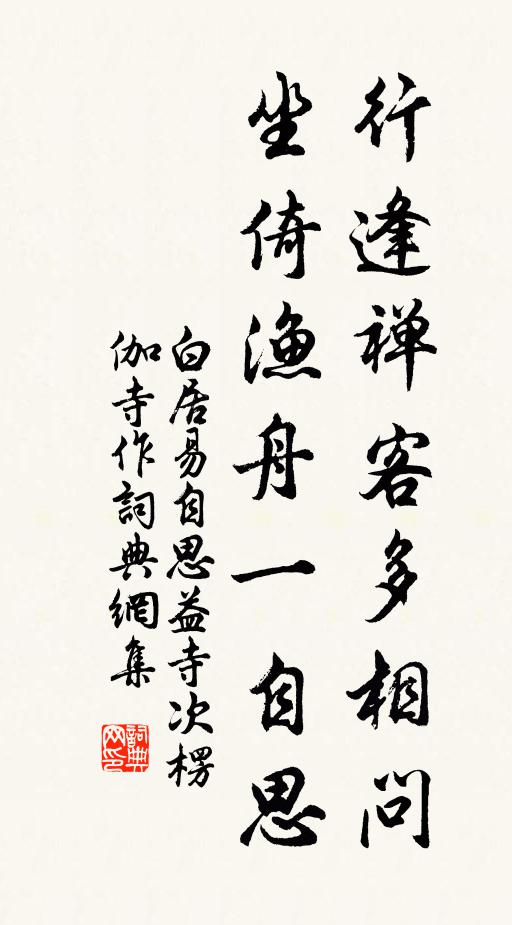 行逢禅客多相問
坐倚漁舟一自思
白居易自思益寺次楞
伽寺作詞典網集
詞典
网印